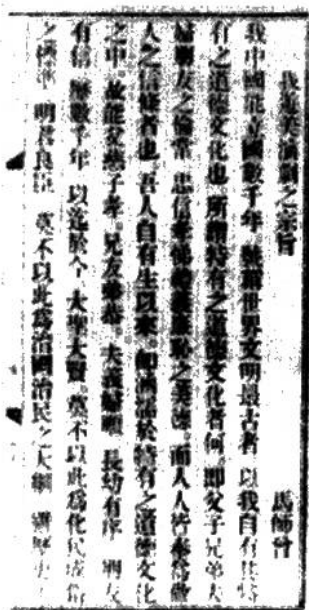 我遊美演劇之宗旨 馬師曾
我中國能立國數千年。無覩世界文明最古者。以我自有其特
有之道德文化也。所謂特有之道德文化者何。即父子兄弟夫
婦朋友之倫常。忠信孝悌禮義廉恥之美德。而人人皆奉為教
人之信條者也。吾人自有生以來。即涵濡於特有之道德文化
之中。故能父慈子孝。兄友弟恭。夫義婦順。長幼有序。朋友
有信。歷數千年。以迄於今。大聖大賢。莫不以此為化民成俗
之標準。明君良臣。莫不以此為治國治民之大綱。